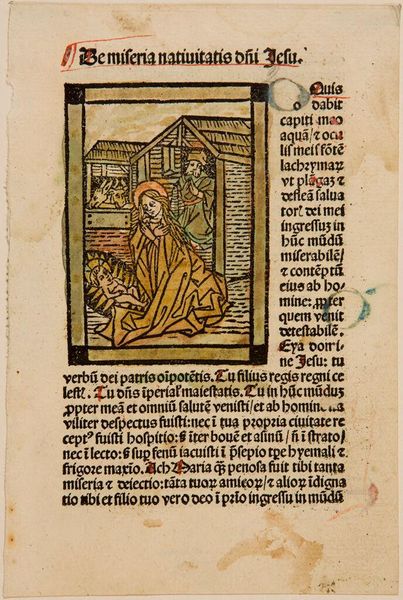 De miseria natiuitatis dñi Jesu.
Quis
dabit
capiti meo
aquā/ ⁊ ocu
lis meis fōtē
lachrymaꝝ
vt plāgaz ⁊
defleā salua
toris dei mei
ingressuz in
hūc mūdū
miserabilē/
⁊ contēptū
eius ab ho-
mine: ꝓpter
quem venit
detestabilē.
Eya domi-
ne Jesu: tu
verbū dei patris oīpotētis. Tu filius regis regni ce
lestis. Tu dñs īperialis maiestatis. Tu in hūc mūduz
ꝓpter meā et omniū salutē venisti/ et ab homin
viliter despectus fuisti: nec ī tua propria ciuitate re
ceptꝰ fuisti hospitio: sꝫ īter bouē et asinū/ ñ ī strato/
nec ī lecto: sꝫ sup fenū iacuisti ī p̄sepio tpe hyemali ⁊
frigore maxīo. Ach Maria ꝙ̄ penosa fuit tibi tanta
miseria ⁊ deiectio: tāta tuoꝝ amicoꝝ/ ⁊ alioꝝ īdigna
tio tibi et filio tuo vero deo ī prīo ingressu in mūdū